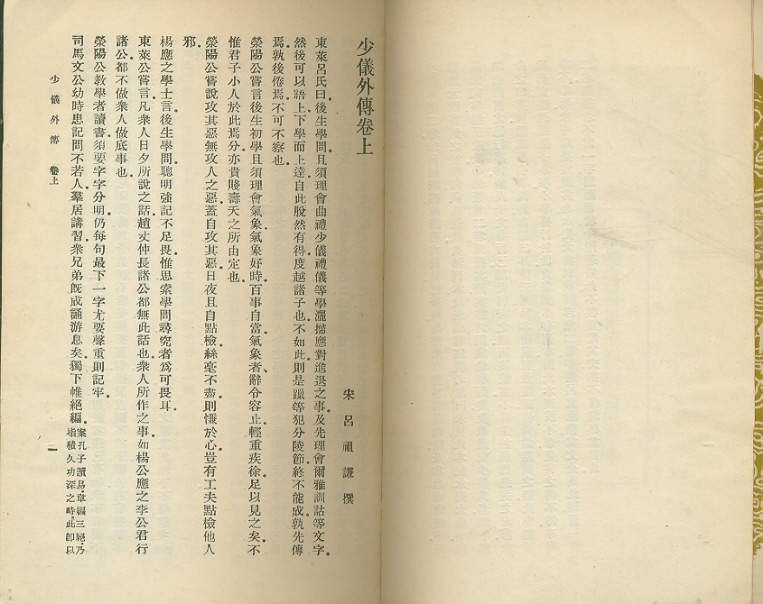 少儀外傳卷上
宋 呂 祖 謙 撰
東萊呂氏曰後生學問且須理會曲禮少儀禮儀等學灑掃應對進退之事及先理會爾雅訓詁等文字
然後可以語上下學而上達自此脫然有得度越諸子也不如此則是躐等犯分陵節終不能成孰先傳
焉孰後倦焉不可不察也
滎陽公嘗言後生初學且須理會氣象氣象好時百事自當氣象者辭令容止輕重疾徐足以見之矣不
惟君子小人於此焉分亦貴賤壽夭之所由定也
滎陽公嘗說攻其惡無攻人之惡蓋自攻其惡日夜且自點檢絲毫不盡則慊於心豈有工夫點檢他人
邪
楊應之學士言後生學問聰明強記不足畏惟思索學問尋究者為可畏耳
東萊公嘗言凡衆人日夕所說之話趙丈仲長諸公都無此話也衆人所作之事如楊公應之李公君行
諸公都不做衆人做底事也
滎陽公教學者讀書須要字字分明仍每句最下一字尤要聲重則記牢
司馬文公幼時患記問不若人羣居講習衆兄弟既成誦游息矣獨下帷絕編案孔子讀易韋編三絕乃
指積久功深之時此卽以
少儀外傳 卷上 一